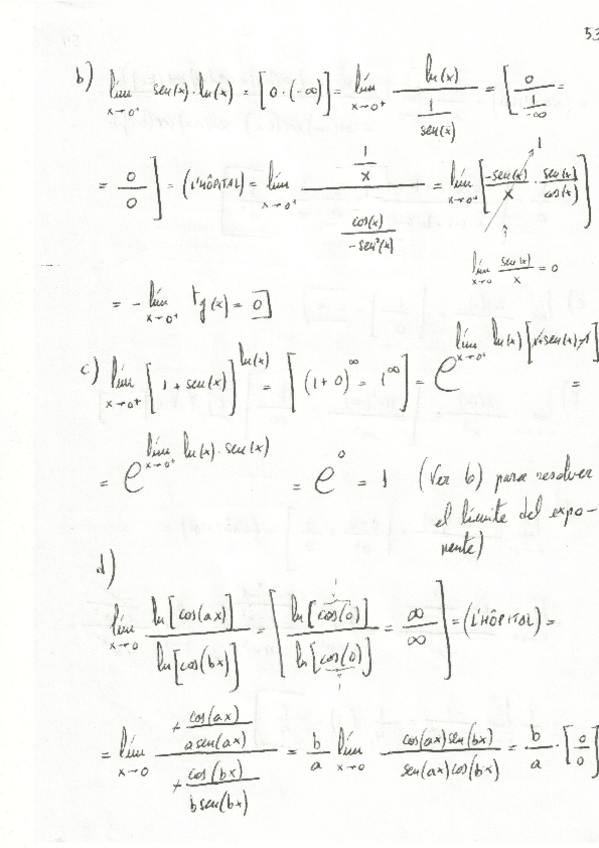 53
b) lím_{x→0⁺} sen(x)·ln(x) = [0·(-∞)] = lím_{x→0⁺} ln(x) / (1/sen(x)) = [0 / (1/-∞) =
= 0/0] = (L'HÔPITAL) = lím_{x→0⁺} (1/x) / (cos(x)/-sen²(x)) = lím_{x→0⁺} [-sen(x)/x · sen(x)/cos(x)]
1
↑
lím_{x→0} sen(x)/x = 0
= - lím_{x→0⁺} tg(x) = 0]
c) lím_{x→0⁺} [1 + sen(x)]^{ln(x)} = [(1+0)^∞ = 1^∞] = e^{lím_{x→0⁺} ln(x)[1+sen(x)-1]} =
= e^{lím_{x→0⁺} ln(x)·sen(x)} = e^0 = 1 (Ver b) para resolver
el límite del expo-
nente)
d)
lím_{x→0} ln[cos(ax)] / ln[cos(bx)] = [ln[cos(0)] / ln[cos(0)] = ∞/∞] = (L'HÔPITAL) =
= lím_{x→0} (+cos(ax)/a sen(ax)) / (+cos(bx)/b sen(bx)) = b/a lím_{x→0} cos(ax)sen(bx) / sen(ax)cos(bx) = b/a · [0/0]